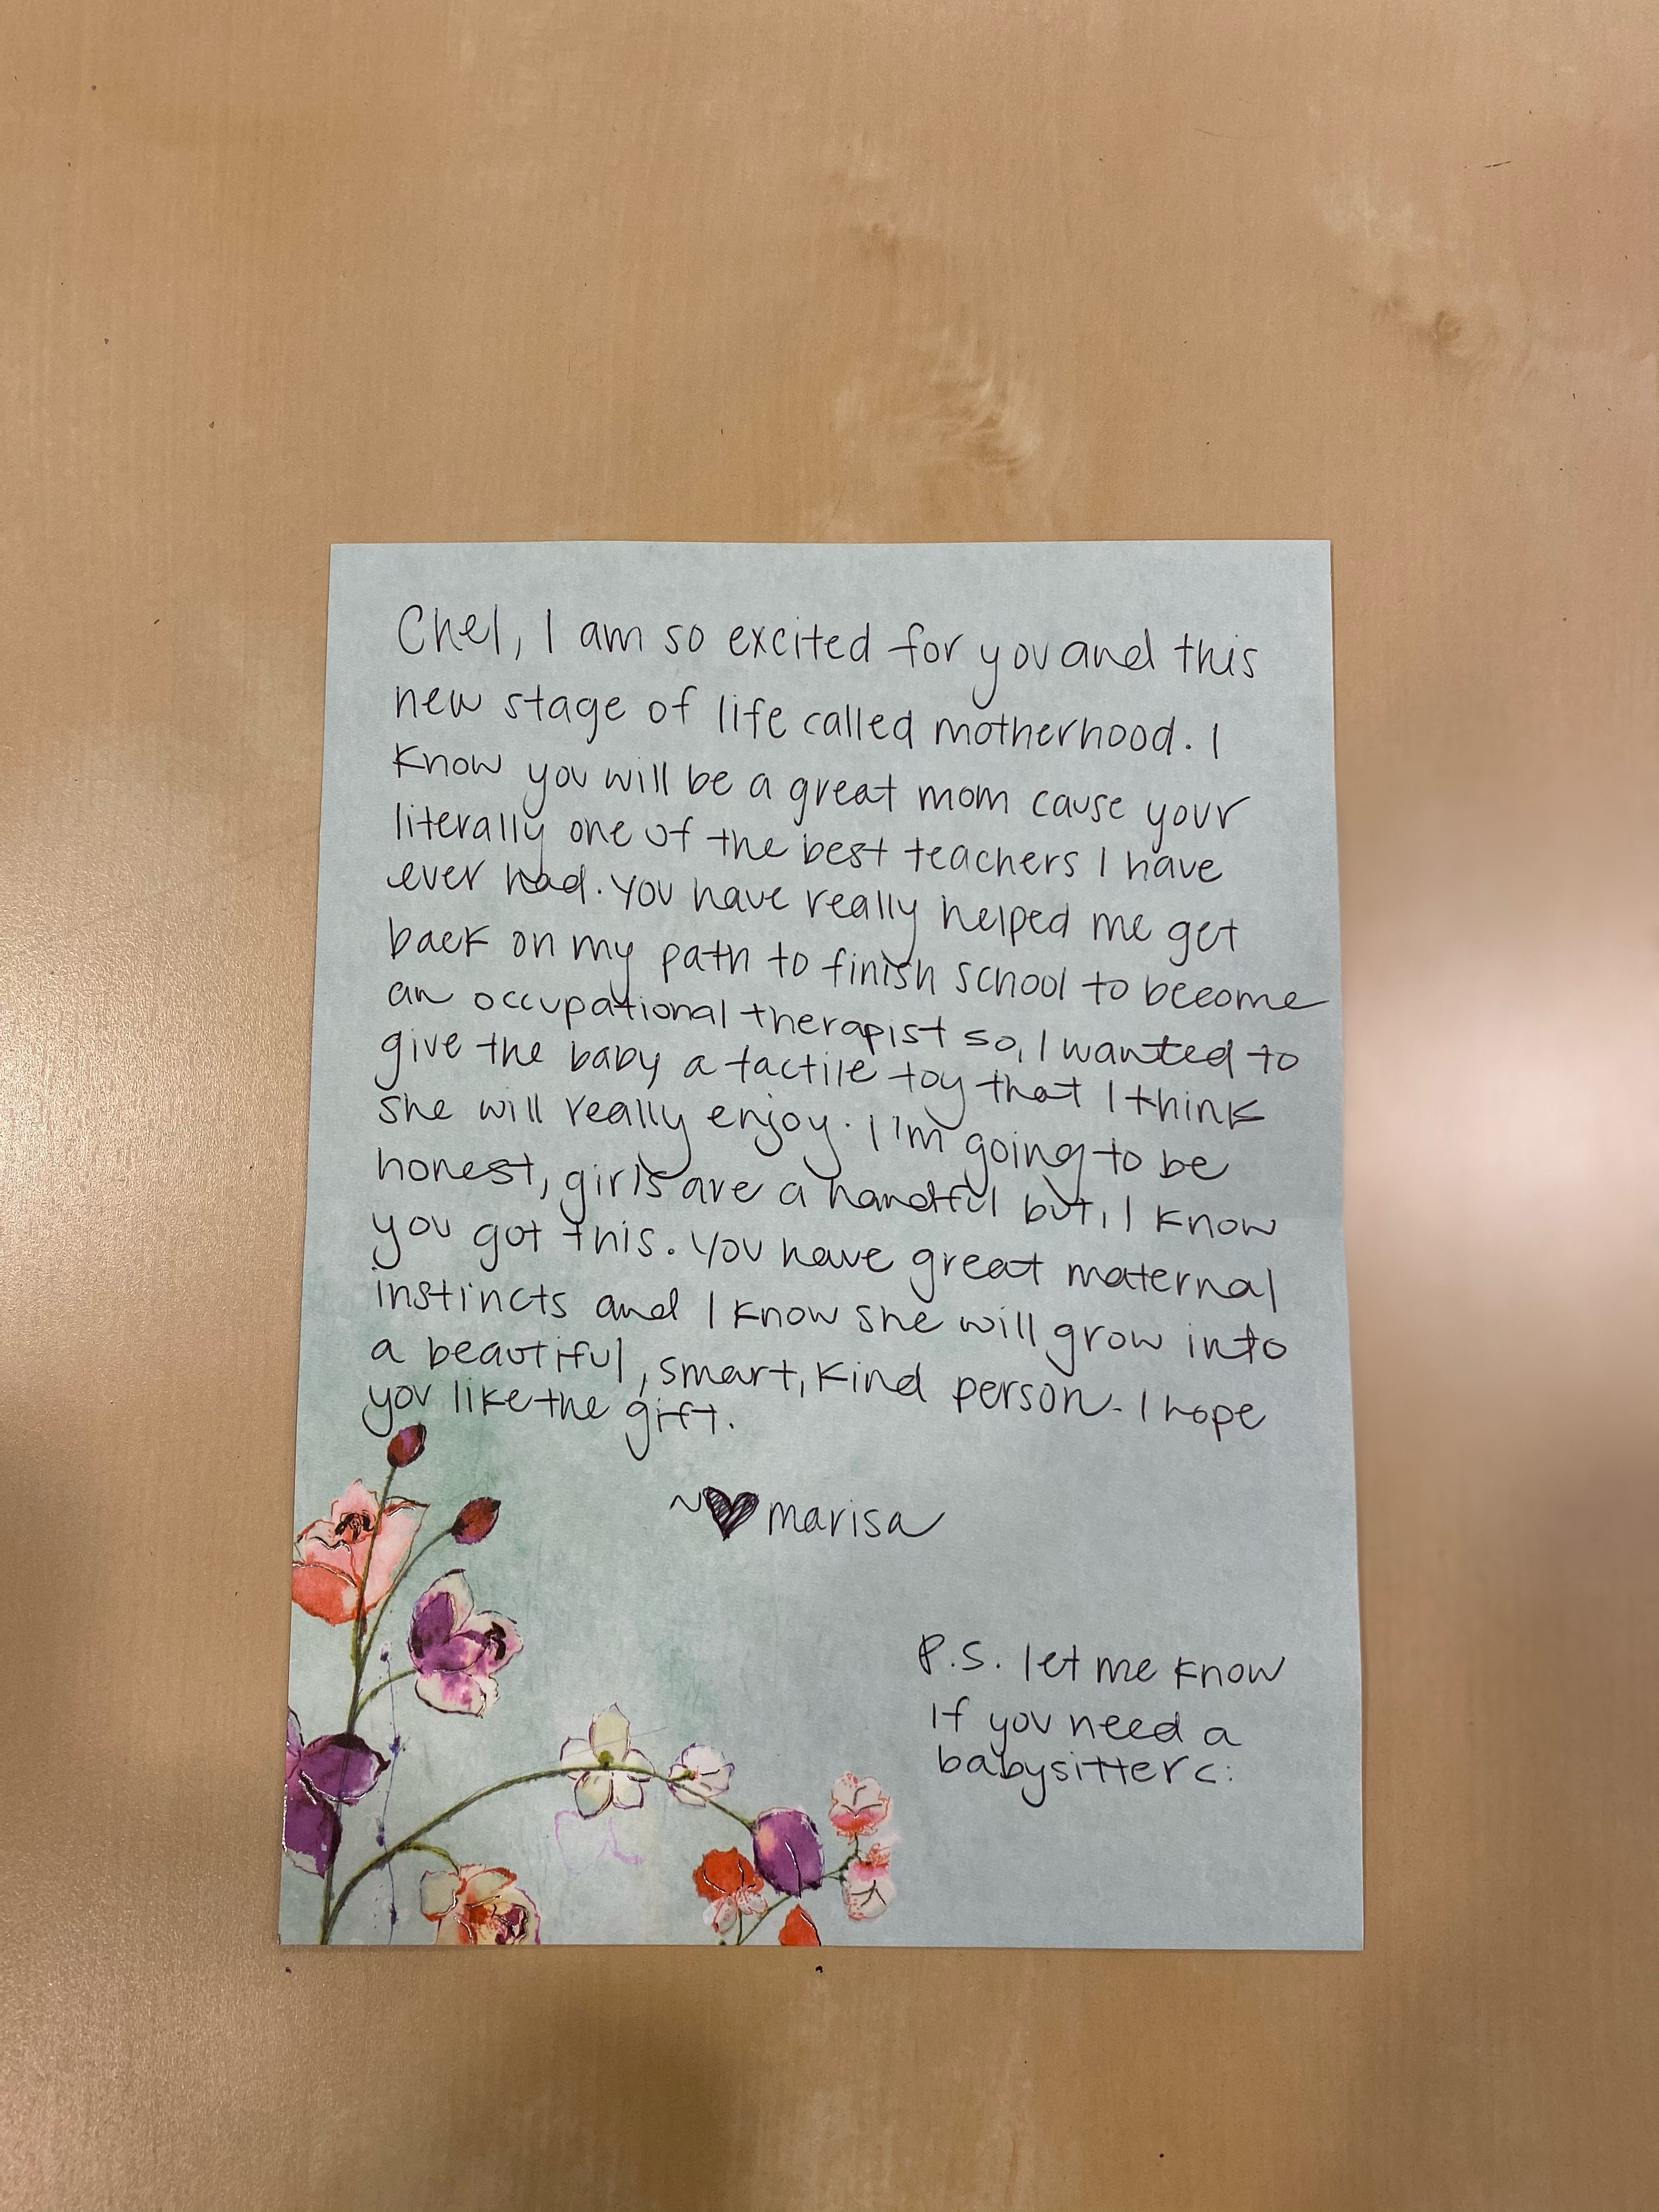 Chel, I am so excited for you and this
new stage of life called motherhood. I
know you will be a great mom cause your
literally one of the best teachers I have
ever had. You have really helped me get
back on my path to finish school to become
an occupational therapist so, I wanted to
give the baby a tactile toy that I think
she will really enjoy. I'm going to be
honest, girls are a handful but, I know
you got this. You have great maternal
instincts and I know she will grow into
a beautiful, smart, kind person. I hope
you like the gift.
~♥ marisa
P.S. let me know
If you need a
babysitter c: